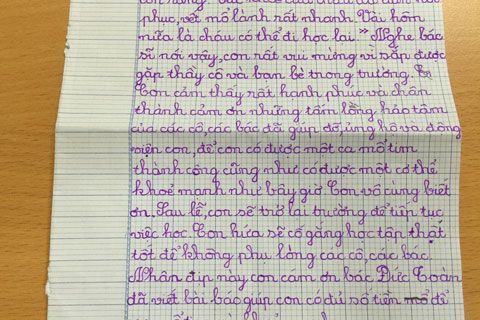 phục, vết mổ lành rất nhanh. Vài hôm
nữa là cháu có thể đi học lại" Nghe bác
sĩ nói vậy, con rất vui mừng vì sắp được
gặp thầy cô và bạn bè trong trường.
Con cảm thấy rất hạnh phúc và chân
thành cảm ơn những tấm lòng hảo tâm
của các cô, các bác đã giúp đỡ, ủng hộ và động
viện con, để con có được một ca mổ tim
thành công cũng như có được một cơ thể
khoẻ mạnh như bây giờ. Con vô cùng biết
ơn. Sau lễ, con sẽ trở lại trường để tiếp tục
việc học. Con hứa sẽ cố gắng học tập thật
tốt để không phụ lòng các cô, các bác.
Nhân dịp này con cảm ơn bác Đức Toàn
đã viết bài báo giúp con có đủ số tiền để